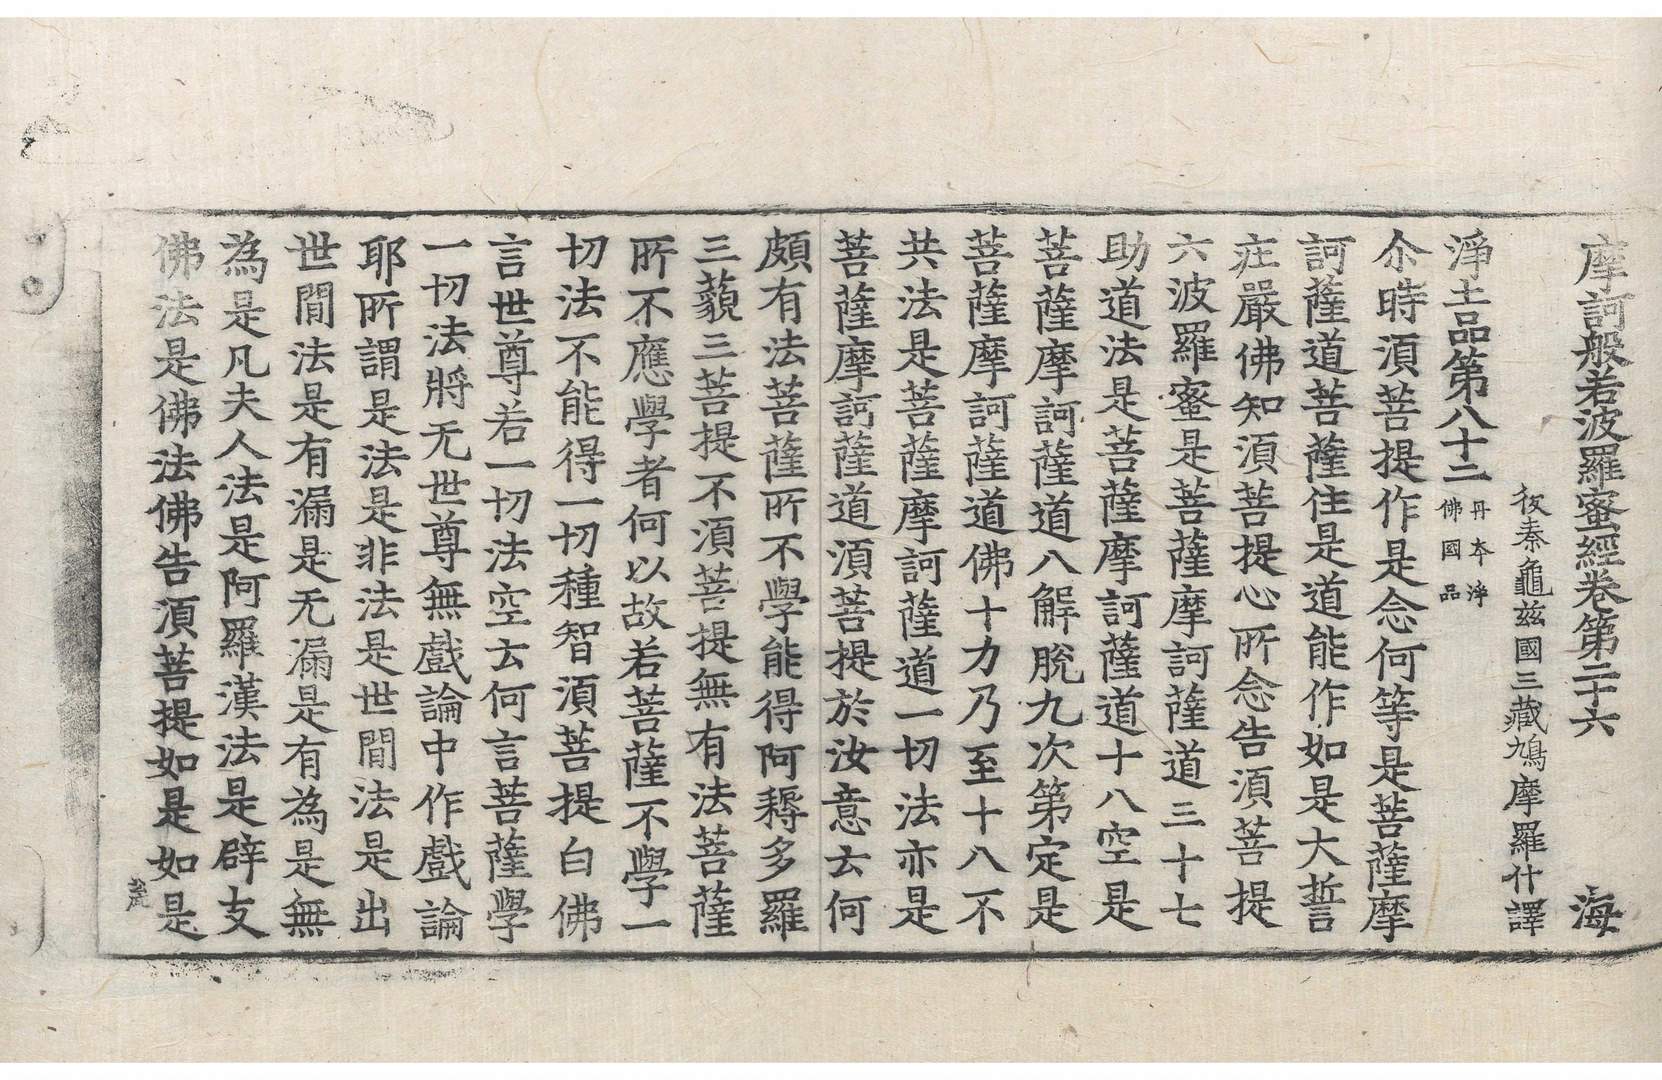 摩訶般若波羅蜜經卷第二十六　海
後秦龜兹國三藏鳩摩羅什譯
淨土品第八十二
丹本淨
佛國品
尒時湏菩提作是念何等是菩薩摩
訶薩道菩薩住是道能作如是大誓
莊嚴佛知湏菩提心所念告湏菩提
六波羅蜜是菩薩摩訶薩道三十七
助道法是菩薩摩訶薩道十八空是
菩薩摩訶薩道八解脫九次第定是
菩薩摩訶薩道佛十力乃至十八不
共法是菩薩摩訶薩道一切法亦是
菩薩摩訶薩道湏菩提於汝意云何
頗有法菩薩所不學能得阿耨多羅
三藐三菩提不湏菩提無有法菩薩
所不應學者何以故若菩薩不學一
切法不能得一切種智湏菩提白佛
言世尊若一切法空云何言菩薩學
一切法將无世尊無戲論中作戲論
耶所謂是法是非法是世間法是出
世間法是有漏是无漏是有為是無
為是凡夫人法是阿羅漢法是辟支
佛法是佛法佛告湏菩提如是如是